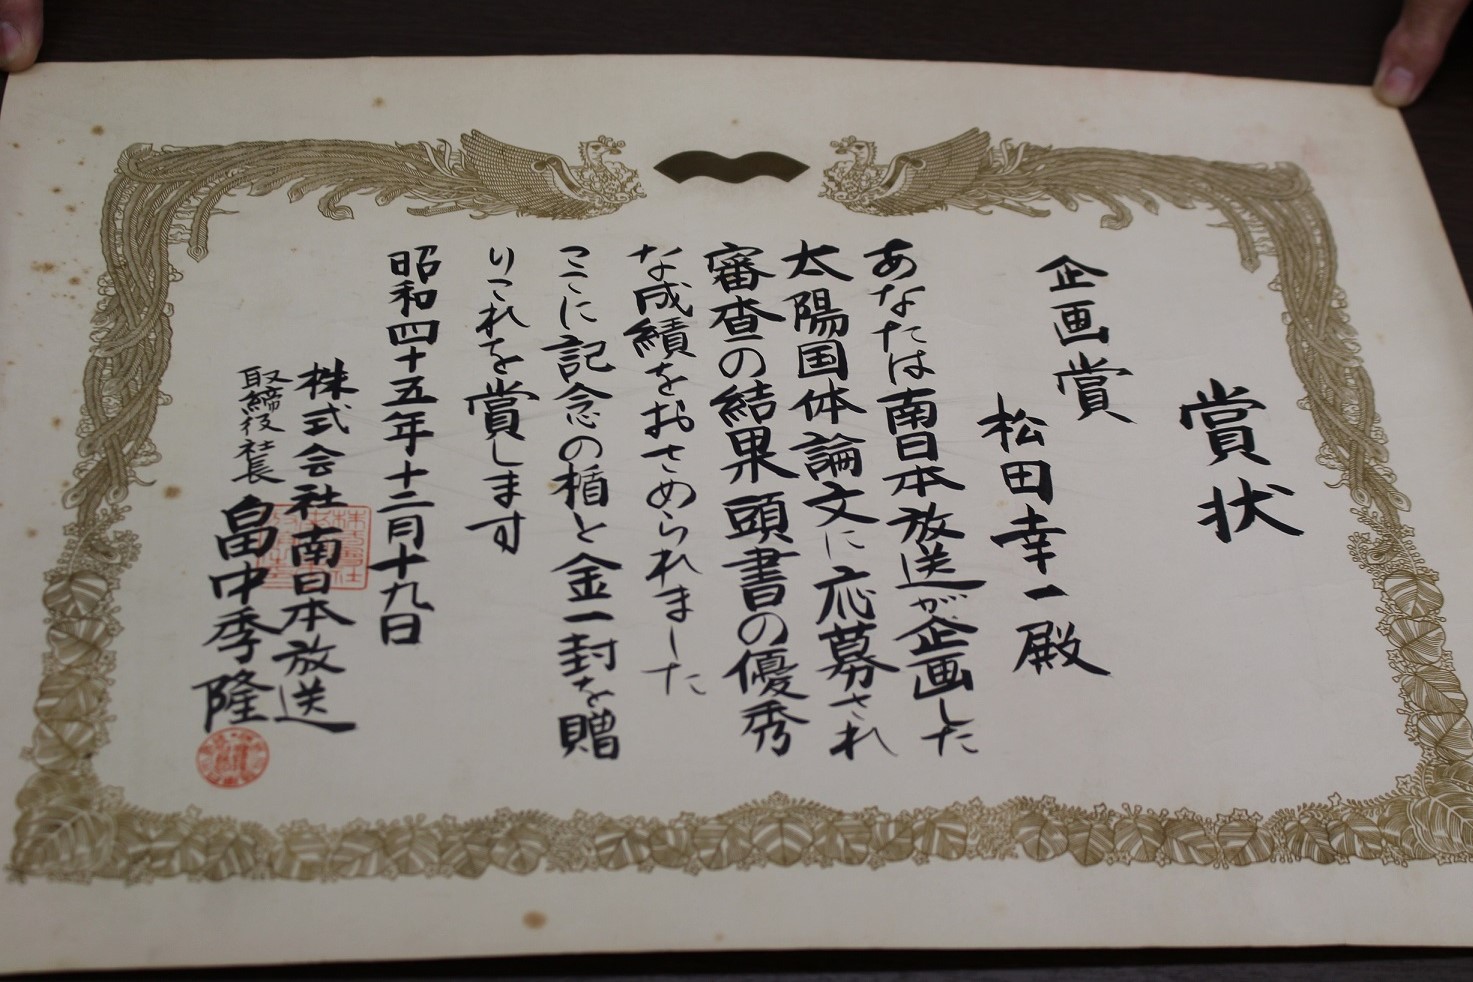 賞状
企画賞
松田幸一殿
あなたは南日本放送が企画した
太陽国体論文に応募され
審査の結果頭書の優秀
な成績をおさめられました
ここに記念の楯と金一封を贈
りこれを賞します
昭和四十五年十二月十九日
株式会社南日本放送
取締役社長 畠中季隆